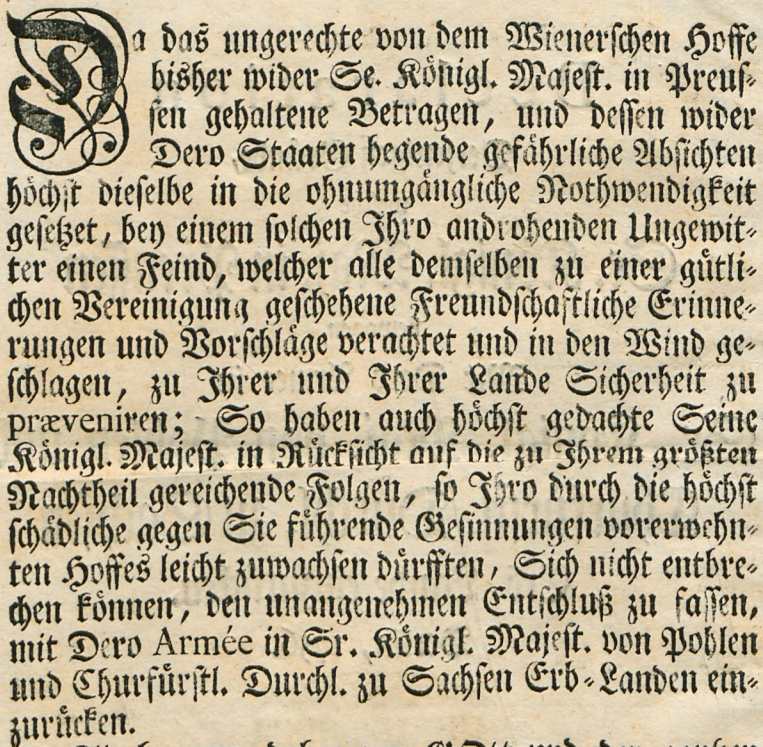 Da das ungerechte von dem Wienerschen Hoffe
bisher wider Se. Königl. Majest. in Preus-
sen gehaltene Betragen, und dessen wider
Dero Staaten hegende gefährliche Absichten
höchst dieselbe in die ohnumgängliche Nothwendigkeit
gesetzet, bey einem solchen Ihro androhenden Ungewit-
ter einen Feind, welcher alle demselben zu einer gütli-
chen Vereinigung geschehene Freundschaftliche Erinne-
rungen und Vorschläge verachtet und in den Wind ge-
schlagen, zu Ihrer und Ihrer Lande Sicherheit zu
præveniren; So haben auch höchst gedachte Seine
Königl. Majest. in Rücksicht auf die zu Ihrem größten
Nachtheil gereichende Folgen, so Ihro durch die höchst
schädliche gegen Sie führende Gesinnungen vorerwehn-
ten Hoffes leicht zuwachsen dürfften, Sich nicht entbre-
chen können, den unangenehmen Entschluß zu fassen,
mit Dero Armée in Sr. Königl. Majest. von Pohlen
und Churfürstl. Durchl. zu Sachsen Erb-Landen ein-
zurücken.